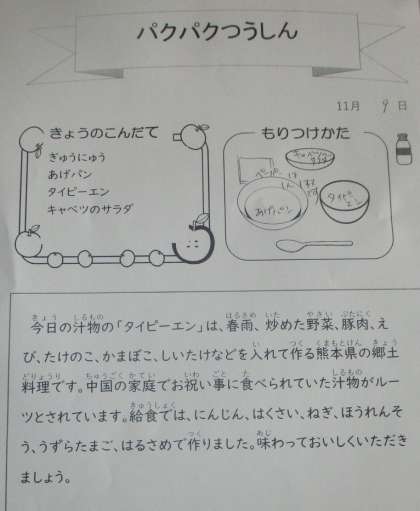 パクパクつうしん
11月 9 日
きょうのこんだて
ぎゅうにゅう
あげパン
タイピーエン
キャベツのサラダ
もりつけかた
キャベツの
サラダ
ペーパーは
あげパン
タイピー
エン
今日の汁物の「タイピーエン」は、春雨、炒めた野菜、豚肉、え
び、たけのこ、かまぼこ、しいたけなどを入れて作る熊本県の郷土
料理です。中国の家庭でお祝い事に食べられていた汁物がルー
ツとされています。給食では、にんじん、はくさい、ねぎ、ほうれんそ
う、うずらたまご、はるさめで作りました。味わっておいしくいただき
ましょう。